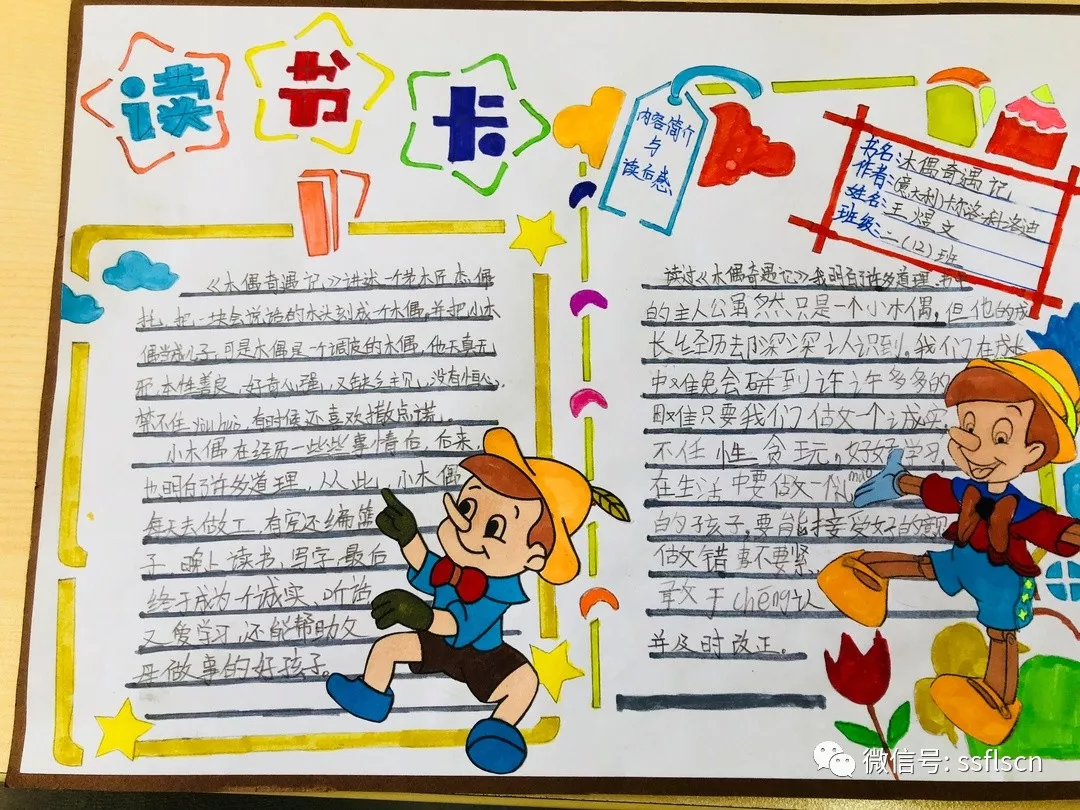 读书卡
内容简介
与
读后感
书名:木偶奇遇记
作者:(意大利)卡尔洛·科洛迪
姓名:王煜文
班级:二(12)班
《木偶奇遇记》讲述一个老木匠杰佩
托,把一块会说话的木头刻成一个木偶,并把小木
偶当成儿子,可是木偶是一个调皮的木偶,他天真无
邪,本性善良,好奇心强,又缺乏主见,没有恒心,
禁不住 yòu huò,有时候还喜欢撒点谎。
小木偶在经历一些些事情后,后来
也明白了许多道理,从从此,小木偶
每天去做工,有空还编篮
子,晚上读书,写字,最后
终于成为个诚实、听话
又爱学习,还能帮助父
母做事的好孩子。
读过《木偶奇遇记》我明白了许多道理,书中
的主人公虽然然只是一个小木偶,但他的成
长经历却深深认识到。我们在成长
中难免会碰到许许多多的
困难只要我们做文一个诚实
不任性贪玩,好好学习,
在生活中要做一个 mào
的孩子,要能接受好的
做文错事不要紧
敢于chéng认
并及时改正。
微信号: ssflscn